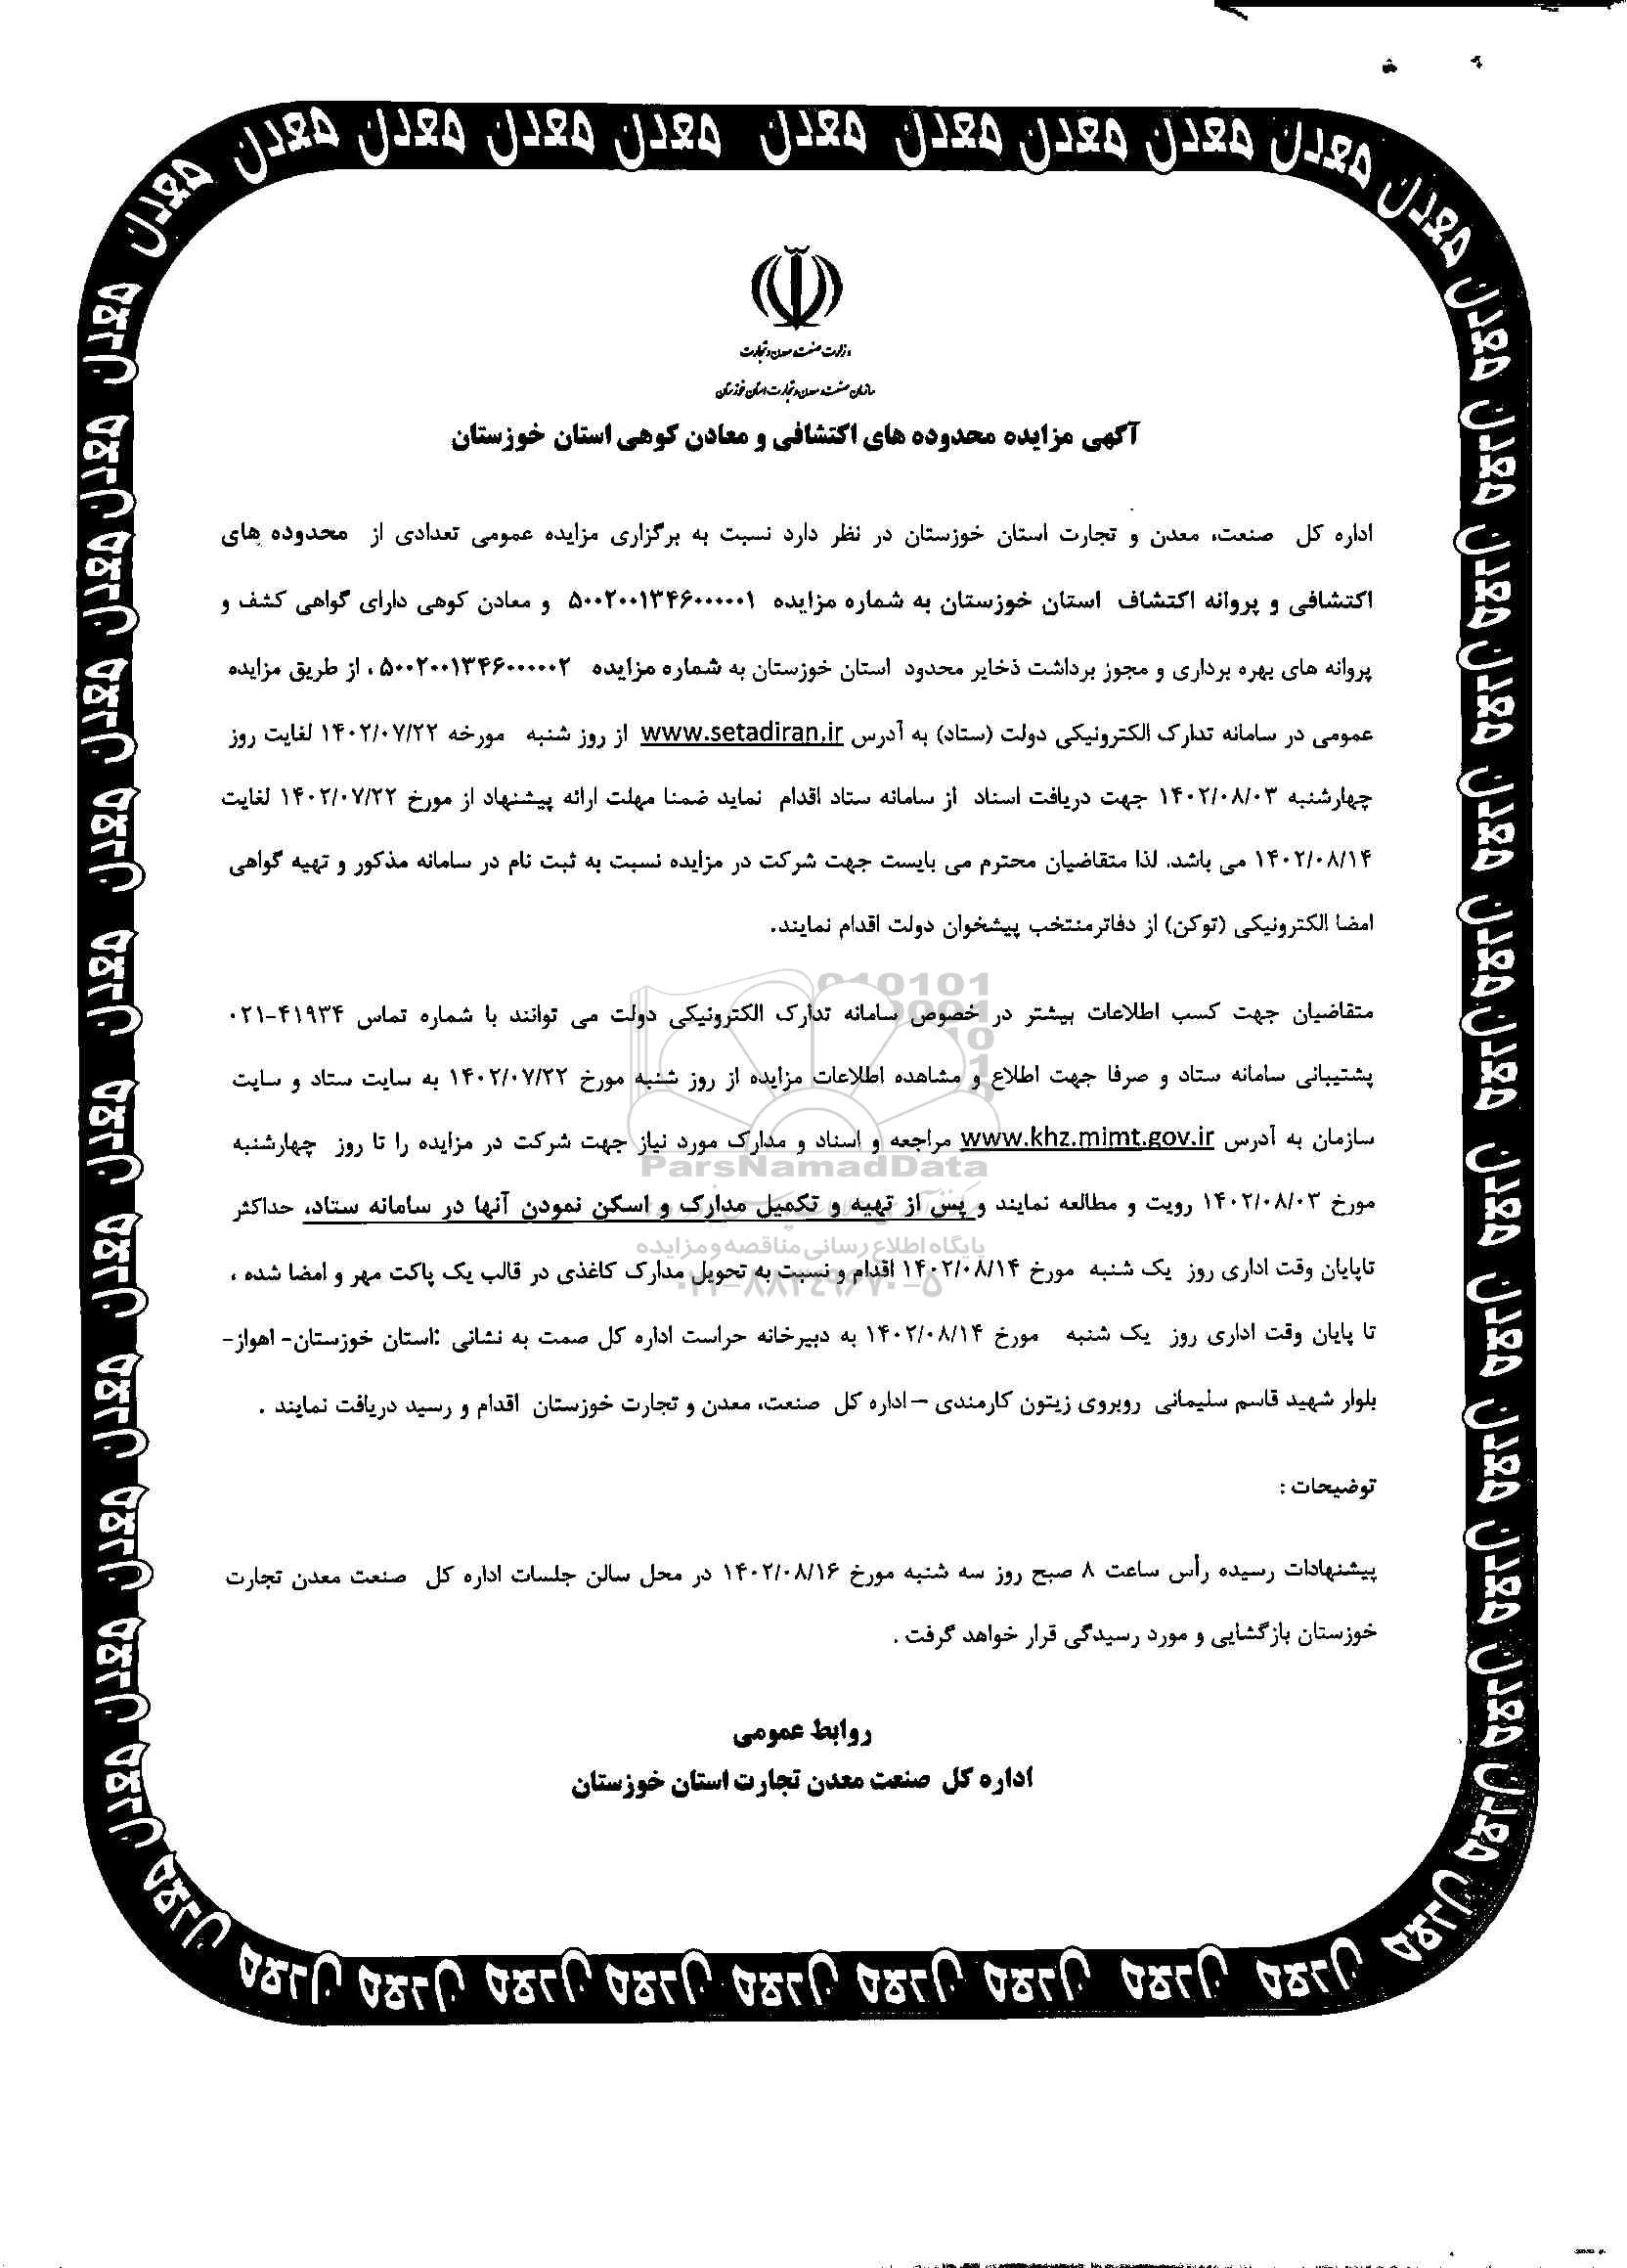 معدن معدن معدن معدن معدن معدن معدن معدن معدن معدن معدن
وزارت صنعت، معدن و تجارت
سازمان صنعت، معدن و تجارت استان خوزستان
آگهی مزایده محدوده های اکتشافی و معادن کوهی استان خوزستان
اداره کل صنعت، معدن و تجارت استان خوزستان در نظر دارد نسبت به برگزاری مزایده عمومی تعدادی از محدوده های
اکتشافی و پروانه اکتشاف استان خوزستان به شماره مزایده ۵۰۰۲۰۰۱۳۴۶۰۰۰۰۰۱ و معادن کوهی دارای گواهی کشف و
پروانه های بهره برداری و مجوز برداشت ذخایر محدود استان خوزستان به شماره مزایده ۵۰۰۲۰۰۱۳۴۶۰۰۰۰۰۲ ، از طریق مزایده
عمومی در سامانه تدارک الکترونیکی دولت (ستاد) به آدرس www.setadiran.ir از روز شنبه مورخه ۱۴۰۲/۰۷/۲۲ لغایت روز
چهارشنبه ۱۴۰۲/۰۸/۰۳ جهت دریافت اسناد از سامانه ستاد اقدام نماید ضمنا مهلت ارائه پیشنهاد از مورخ ۱۴۰۲/۰۷/۲۲ لغایت
۱۴۰۲/۰۸/۱۴ می باشد. لذا متقاضیان محترم می بایست جهت شرکت در مزایده نسبت به ثبت نام در سامانه مذکور و تهیه گواهی
امضا الکترونیکی (توکن) از دفاترمنتخب پیشخوان دولت اقدام نمایند.
متقاضیان جهت کسب اطلاعات بیشتر در خصوص سامانه تدارک الکترونیکی دولت می توانند با شماره تماس ۴۱۹۳۴-۰۲۱
پشتیبانی سامانه ستاد و صرفا جهت اطلاع و مشاهده اطلاعات مزایده از روز شنبه مورخ ۱۴۰۲/۰۷/۲۲ به سایت ستاد و سایت
سازمان به آدرس www.khz.mimt.gov.ir مراجعه و اسناد و مدارک مورد نیاز جهت شرکت در مزایده را تا روز چهارشنبه
ParsNamadData
مورخ ۱۴۰۲/۰۸/۰۳ رویت و مطالعه نمایند و پس از تهیه و تکمیل مدارک و اسکن نمودن آنها در سامانه ستاد، حداکثر
پایگاه اطلاع رسانی مناقصه و مزایده
تاپایان وقت اداری روز یک شنبه مورخ ۱۴۰۲/۰۸/۱۴ اقدام و نسبت به تحویل مدارک کاغذی در قالب یک پاکت مهر و امضا شده ،
۰۲۱-۸۸۳۴۹۶۷۰-۵
تا پایان وقت اداری روز یک شنبه مورخ ۱۴۰۲/۰۸/۱۴ به دبیرخانه حراست اداره کل صمت به نشانی :استان خوزستان- اهواز-
بلوار شهید قاسم سلیمانی روبروی زیتون کارمندی – اداره کل صنعت، معدن و تجارت خوزستان اقدام و رسید دریافت نمایند .
توضیحات :
پیشنهادات رسیده رأس ساعت ۸ صبح روز سه شنبه مورخ ۱۴۰۲/۰۸/۱۶ در محل سالن جلسات اداره کل صنعت معدن تجارت
خوزستان بازگشایی و مورد رسیدگی قرار خواهد گرفت .
روابط عمومی
اداره کل صنعت معدن تجارت استان خوزستان